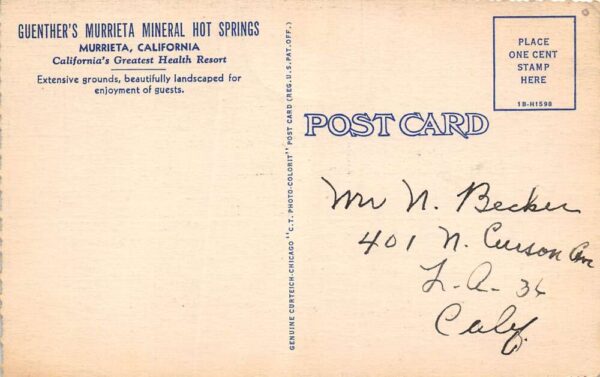 GUENTHER'S MURRIETA MINERAL HOT SPRINGS
MURRIETA, CALIFORNIA
California's Greatest Health Resort
Extensive grounds, beautifully landscaped for
enjoyment of guests.
GENUINE CURTEICH-CHICAGO "C.T. PHOTO-COLORIT" POST CARD (REG. U.S. PAT. OFF.)
PLACE
ONE CENT
STAMP
HERE
1B-H1598
POST CARD
Mr N. Becker
401 N. Curson Ave
L-A- 36
Calif.